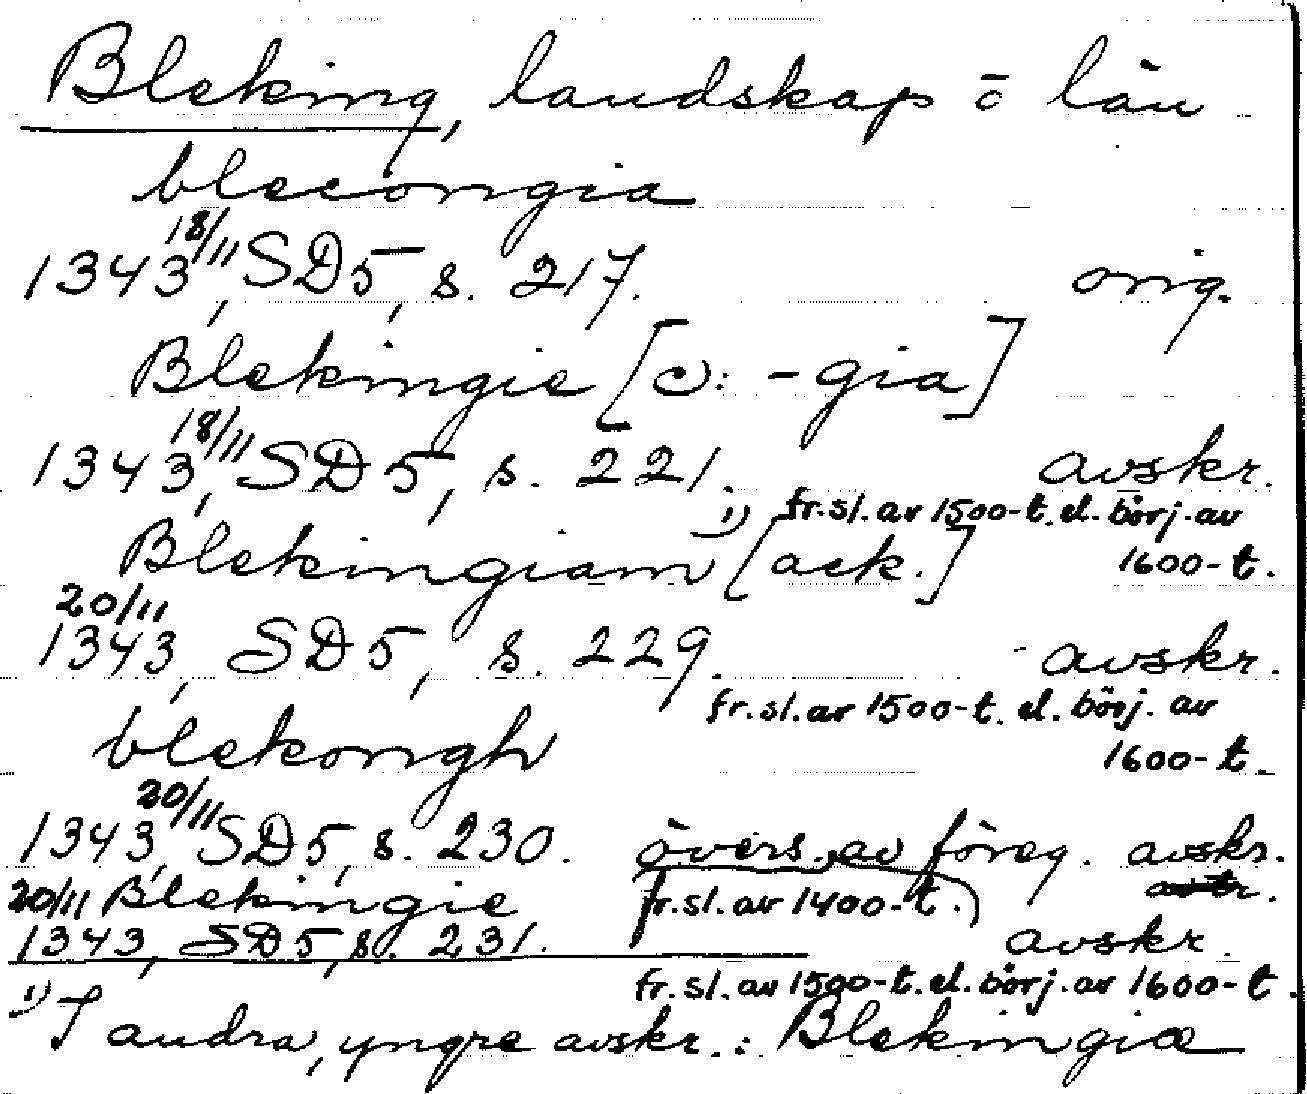 Bleking, landskap o län
blecongia
1343 18/11, SD5, s. 217. orig.
Blekingie [ɔ: -gia]
1343 18/11, SD5, s. 221. avskr.
fr. sl. av 1500-t. el. börj. av
Blekingiam 1) [ack.] 1600-t.
20/11
1343, SD5, s. 229. avskr.
fr. sl. av 1500-t. el. börj. av
blekongh 1600-t.
1343 20/11, SD5, s. 230. övers. av föreg. avskr.
20/11 Blekingie fr. sl. av 1400-t.)
1343, SD5, s. 231. avskr.
fr. sl. av 1500-t. el. börj. av 1600-t.
1) I andra, yngre avskr.: Blekingiæ